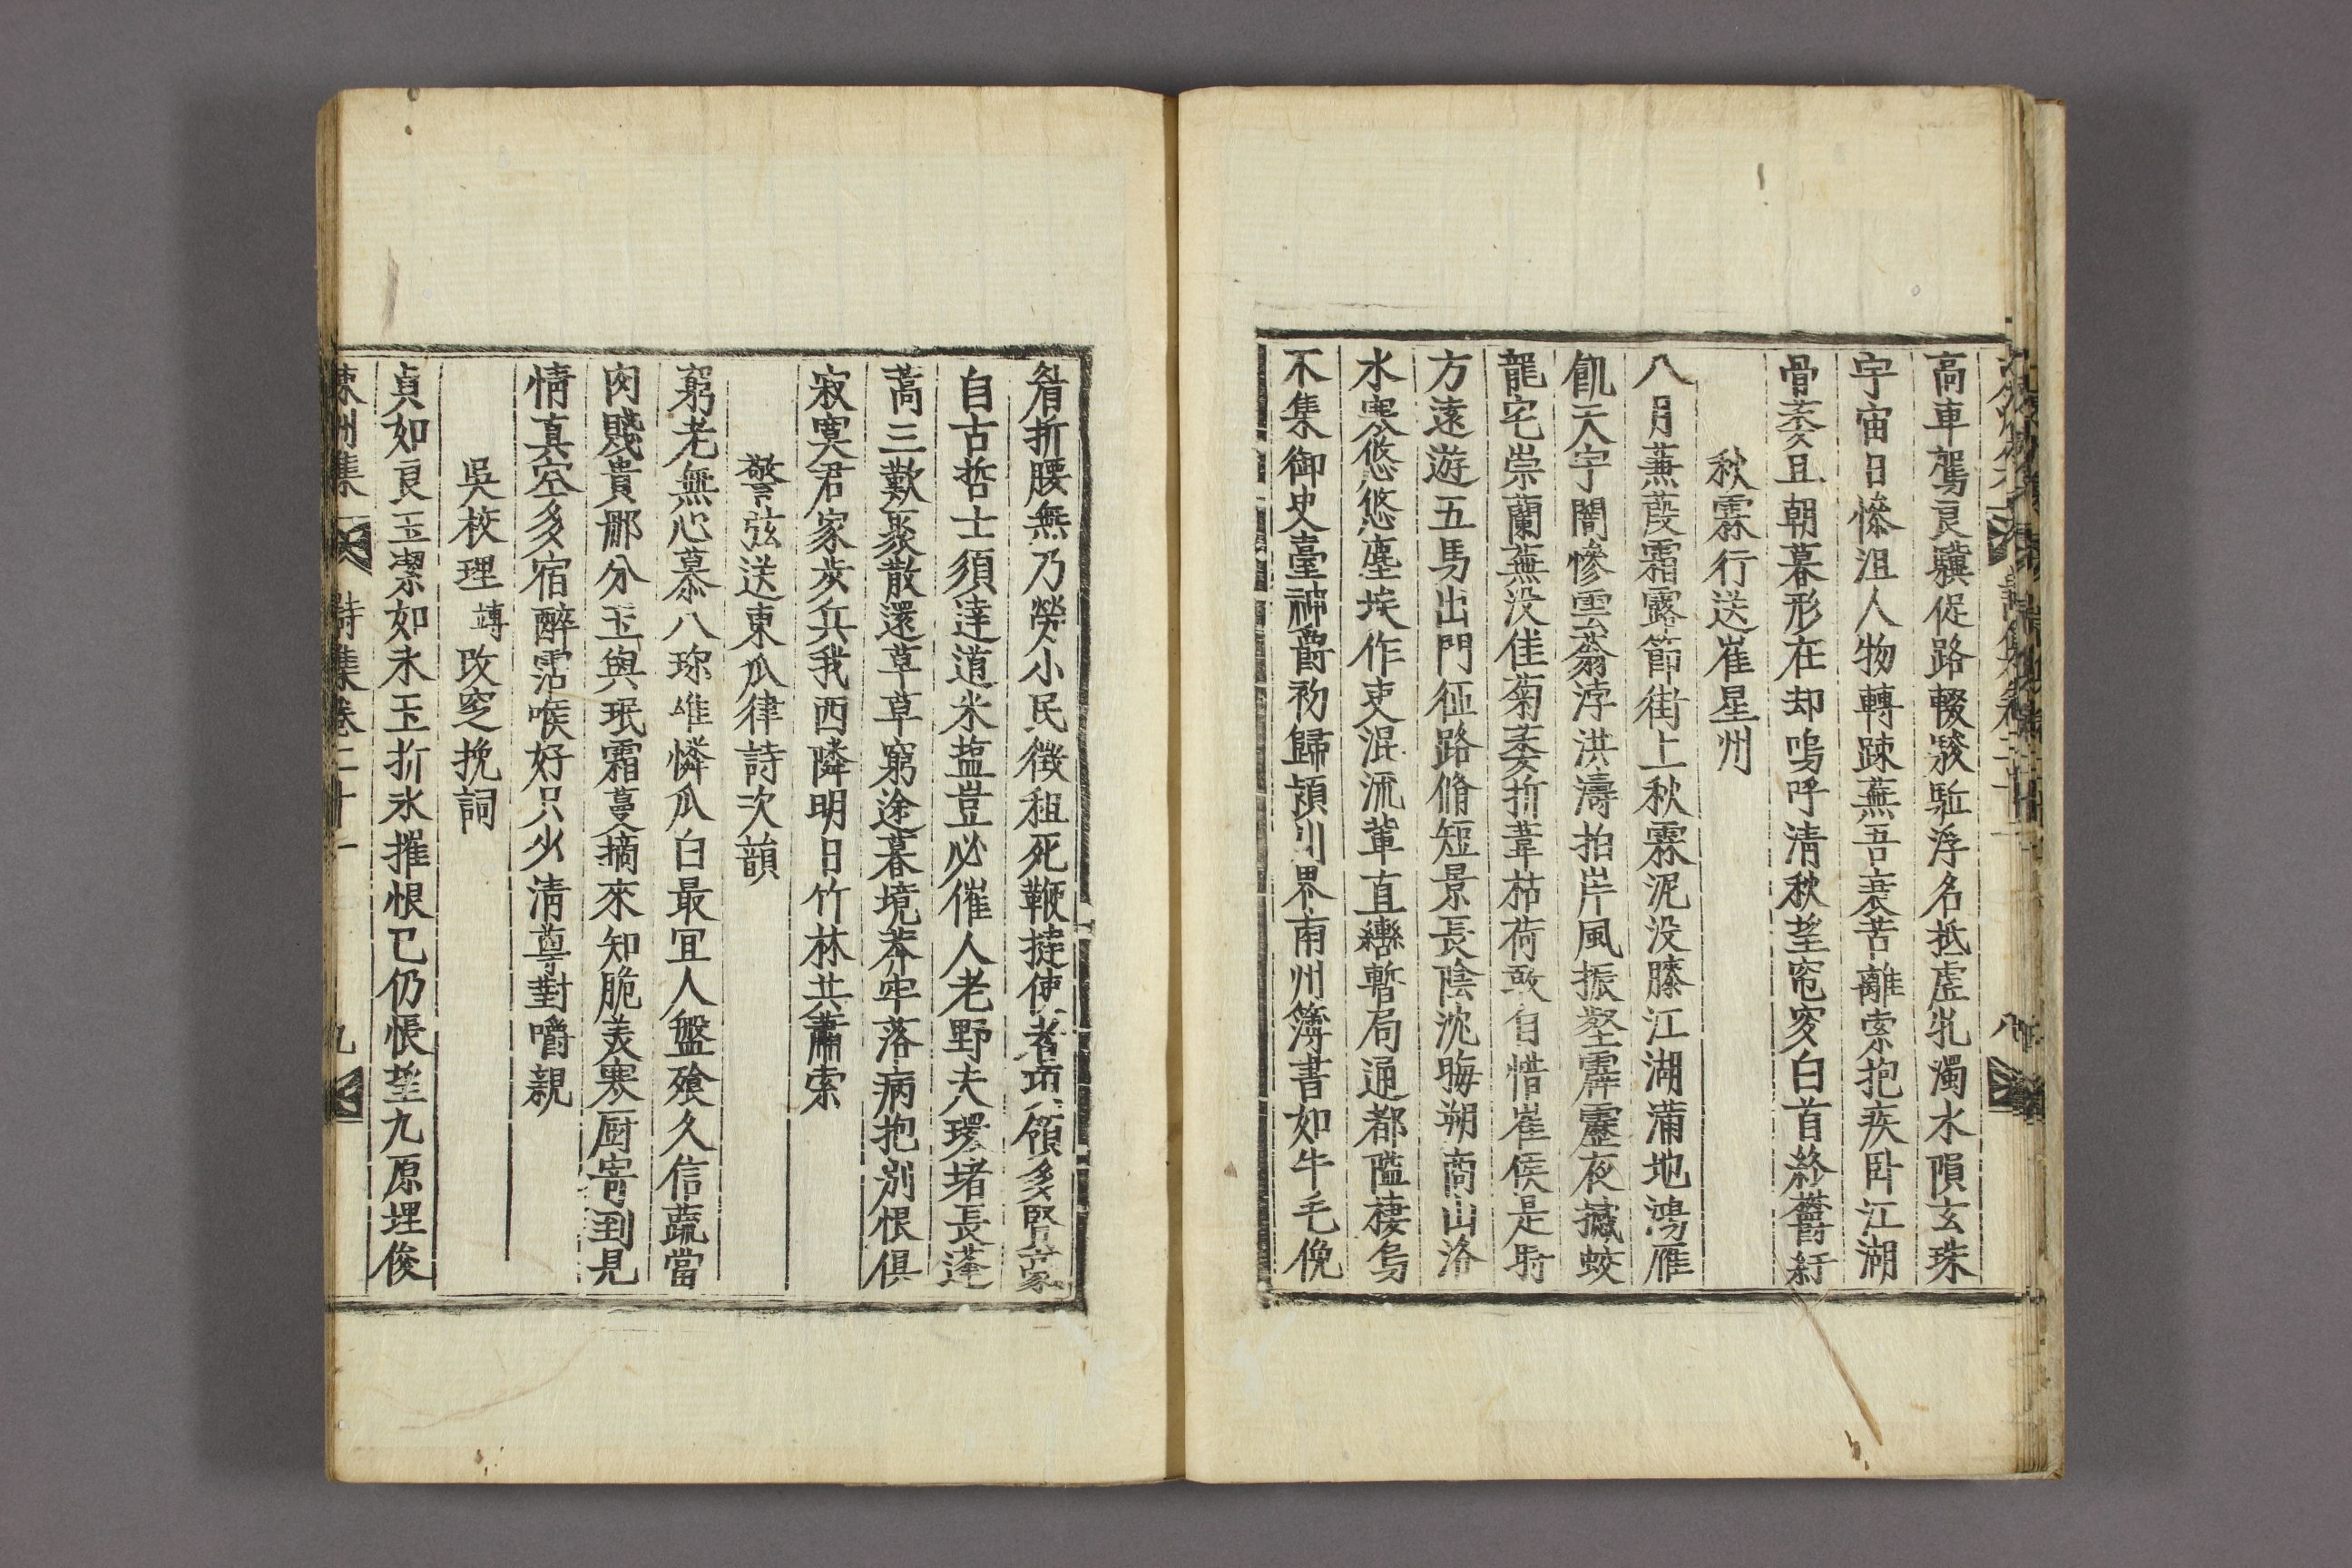 高車駕良驥促路輟駸駈浮名抵虛牝濁水隕玄珠
宇宙日慘沮人物轉踈蕪吾衰苦離索抱疾卧江湖
骨委且朝暮形在却嗚呼清秋望窀穸白首終舊紆
秋霖行送崔星州
八月蒹葭霜露節街上秋霖泥沒膝江湖滿地鴻雁
飢天宇闇慘雲蓊浡洪濤拍岸風振壑霹靂夜撼蛟
龍宅崇蘭蕪没佳菊委折葦枯荷敢自惜崔侯是時
方遠遊五馬出門征路脩短景長陰沈晦朔商山洛
水寒悠悠塵埃作吏混流輩直轡暫局通都隘棲烏
不集御史臺神爵初歸潁川界南州簿書如牛毛俛
眉折腰無乃勞小民徵租死鞭撻使者項領多賢豪
自古哲士須達道米盐豈必催人老野夫環堵長蓬
蒿三歎聚散還草草窮途暮境莽牢落病抱別恨俱
寂寞君家步兵我西隣明日竹林共蕭索
警弦送東瓜律詩次韻
窮老無心慕八珎唯憐瓜白最冝人盤飱久信蔬當
肉賤貴那分玉與珉霜蔓摘來知脆美寒厨寄到見
情真空多宿醉霑喉好只少清尊對嚼親
吳校理竱改窆挽詞
貞如良玉潔如氷玉折氷摧恨已仍悵望九原埋俊
詩集卷二十一
九